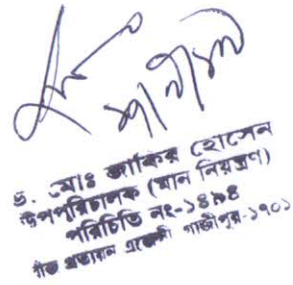 ড. মোঃ জাকির হোসেন
উপপরিচালক (মান নিয়ন্ত্রণ)
পরিচিতি নং-১৪৯৪
বীজ প্রত্যয়ন এজেন্সী গাজীপুর-১৭০১